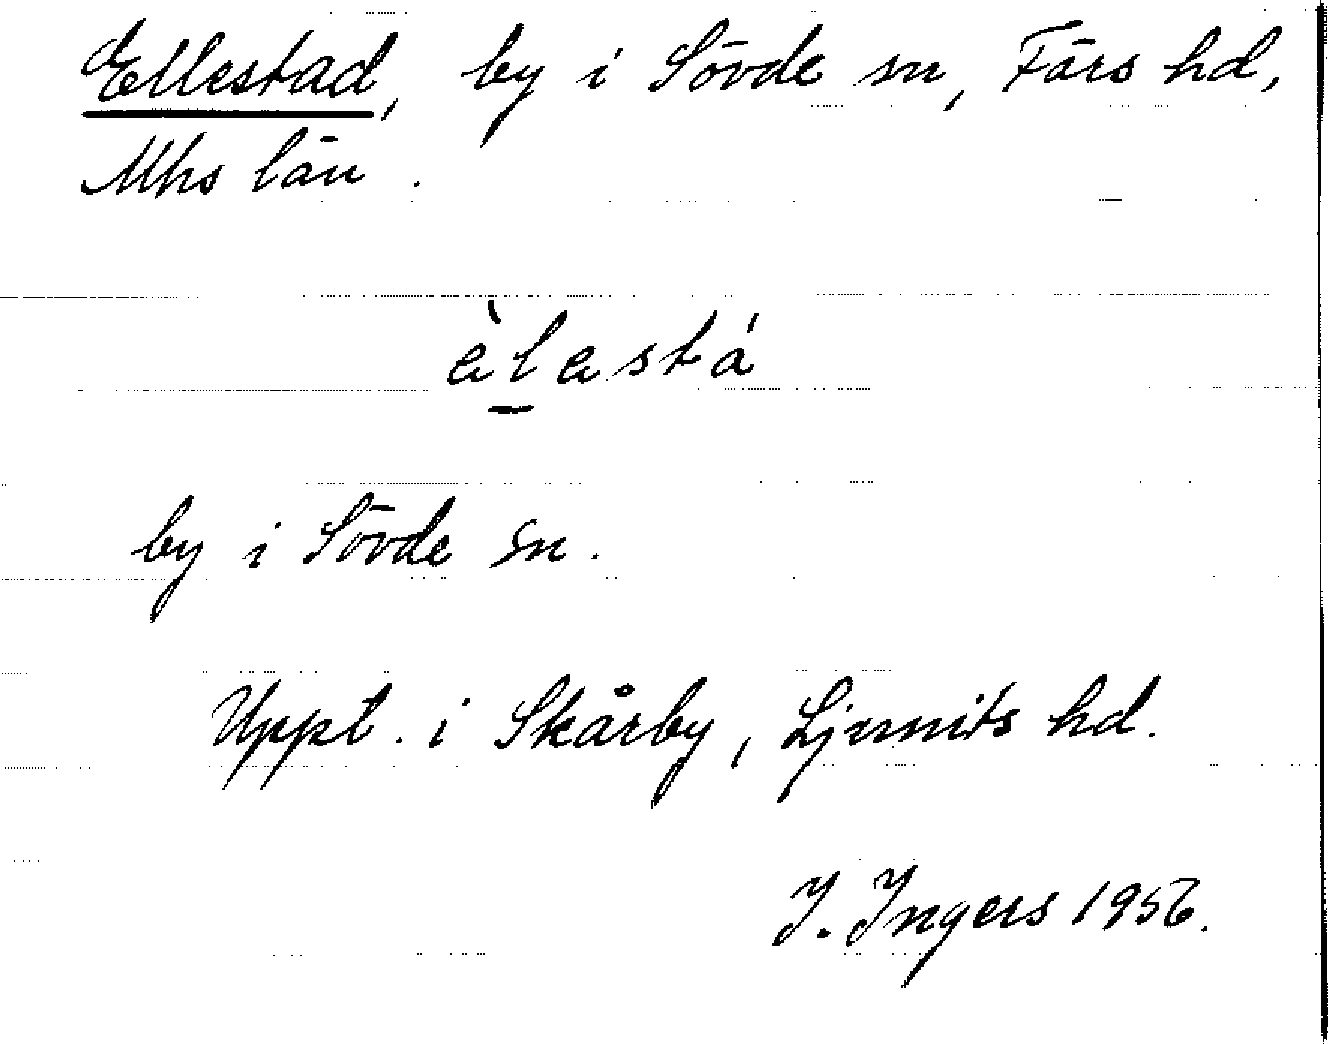 Ellestad, by i Sövde sn, Färs hd,
Mhs län.
èlastá
by i Sövde sn.
Uppt. i Skårby, Ljunits hd.
I. Ingers 1956.